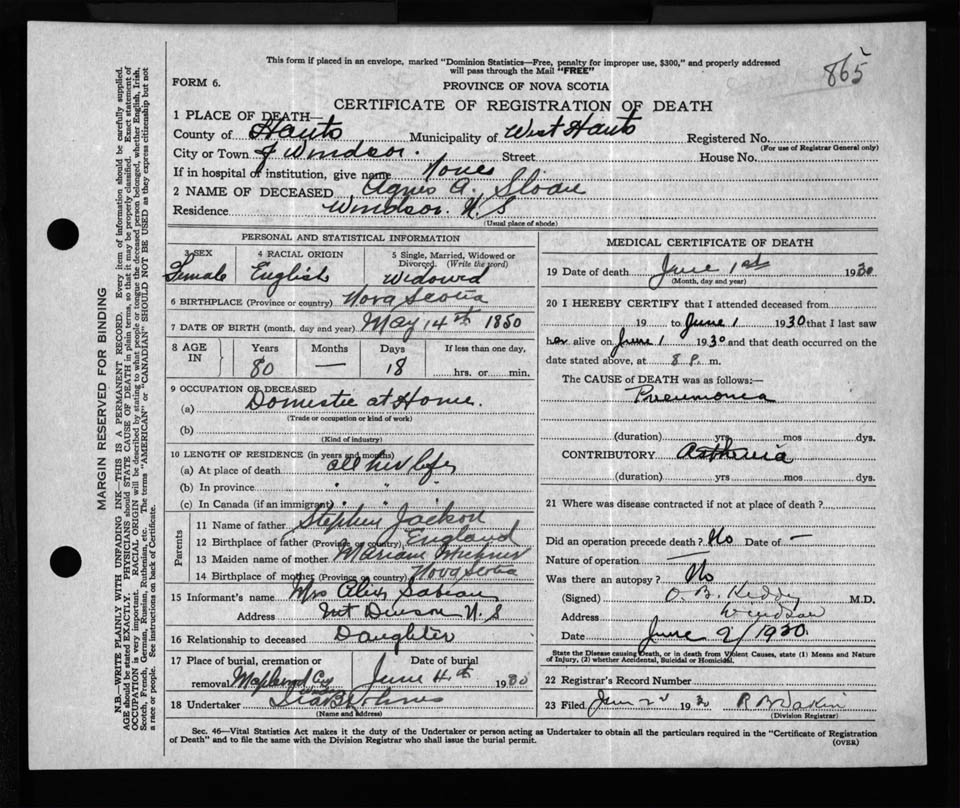 This form if placed in an envelope, marked "Dominion Statistics—Free, penalty for improper use, $300," and properly addressed
will pass through the Mail "FREE"
865
FORM 6.
PROVINCE OF NOVA SCOTIA
CERTIFICATE OF REGISTRATION OF DEATH
1 PLACE OF DEATH—
County of Hants Municipality of West Hants Registered No.
(For use of Registrar General only)
City or Town of Windsor. Street House No.
If in hospital or institution, give name
2 NAME OF DECEASED Agnes A. Sloan
Residence Windsor. N. S
(Usual place of abode)
PERSONAL AND STATISTICAL INFORMATION
3 SEX 4 RACIAL ORIGIN 5 Single, Married, Widowed or
Divorced. (Write the word)
Female English Widowed
6 BIRTHPLACE (Province or country) Nova Scotia
7 DATE OF BIRTH (month, day and year) May 14th 1850
8 AGE IN Years Months Days If less than one day,
80 — 18 hrs. or min.
9 OCCUPATION OF DECEASED
(a) Domestic at Home.
(Trade or occupation or kind of work)
(b)
(Kind of industry)
10 LENGTH OF RESIDENCE (in years and months)
(a) At place of death all her life
(b) In province " " "
(c) In Canada (if an immigrant) " " "
Parents
11 Name of father Stephen Jackson
12 Birthplace of father (Province or country) England
13 Maiden name of mother
14 Birthplace of mother (Province or country) Nova Scotia
15 Informant's name Mrs
Address Mt Denson N. S
16 Relationship to deceased Daughter
17 Place of burial, cremation or Date of burial
removal June 4th 1930
18 Undertaker
(Name and address)
MEDICAL CERTIFICATE OF DEATH
19 Date of death June 1st 1930
(Month, day and year)
20 I HEREBY CERTIFY that I attended deceased from
19 to June 1 1930 that I last saw
her alive on June 1 1930 and that death occurred on the
date stated above, at 8 P. m.
The CAUSE of DEATH was as follows:—
Pneumonia
(duration) yrs mos dys.
CONTRIBUTORY Asthenia
(duration) yrs mos dys.
21 Where was disease contracted if not at place of death?
Did an operation precede death? No Date of —
Nature of operation —
Was there an autopsy? No
(Signed) O. B. Keddy M.D.
Address Windsor
Date June 2/1930.
State the Disease causing Death, or in death from Violent Causes, state (1) Means and Nature
of Injury, (2) whether Accidental, Suicidal or Homicidal.
22 Registrar's Record Number
23 Filed June 2 193
(Division Registrar)
Sec. 46—Vital Statistics Act makes it the duty of the Undertaker or person acting as Undertaker to obtain all the particulars required in the "Certificate of Registration
of Death" and to file the same with the Division Registrar who shall issue the burial permit.
(OVER)
MARGIN RESERVED FOR BINDING
N.B.—WRITE PLAINLY WITH UNFADING INK—THIS IS A PERMANENT RECORD. Every item of information should be carefully supplied.
AGE should be stated EXACTLY. PHYSICIANS should STATE CAUSE OF DEATH in plain terms, so that it may be properly classified. Exact statement of
OCCUPATION is very important. RACIAL ORIGIN will be described by stating to what people or tongue the deceased person belonged, whether English, Irish,
Scotch, French, German, Russian, Ruthenian, etc. The terms "AMERICAN" or "CANADIAN" SHOULD NOT BE USED as they express citizenship but not
a race or people. See instructions on back of Certificate.